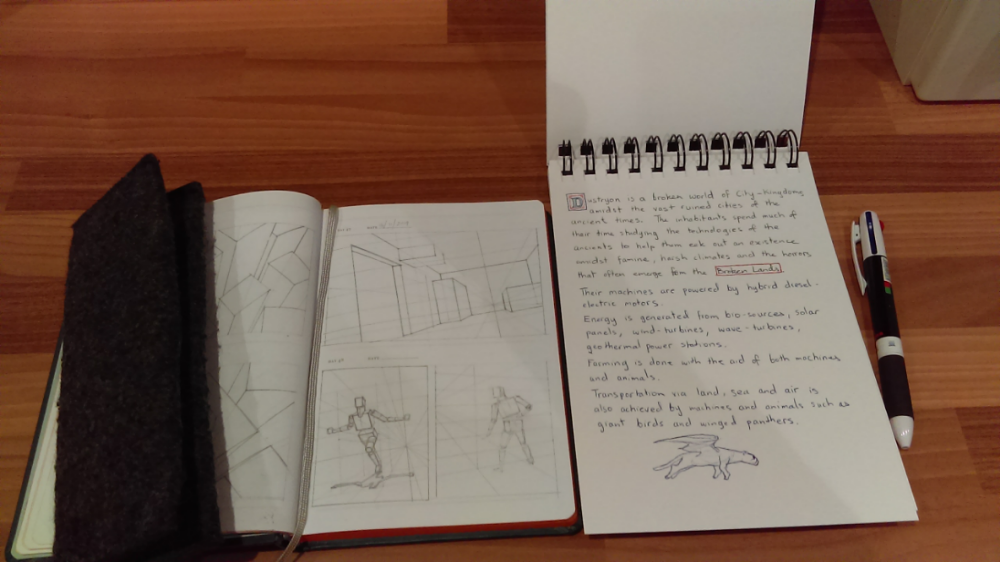 Dustrgon is a broken world of City-Kingdoms
amidst the vast ruined cities of the
ancient times. The inhabitants spend much of
their time studying the technologies of the
ancients to help them eak out an existence
amidst famine, harsh climates and the horrors
that often emerge from the Broken Lands
Their machines are powered by hybrid diesel-
electric motors.
Energy is generated from bio-sources, solar
panels, wind-turbines, wave-turbines,
geothermal power stations.
Farming is done with the aid of both machines
and animals.
Transportation via land, sea and air is
also achieved by machines and animals such as
giant birds and winged panthers.